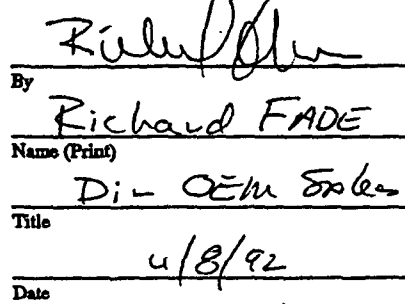 By
Richard FADE
Name (Print)
Dir OEM Sales
Title
4/8/92
Date